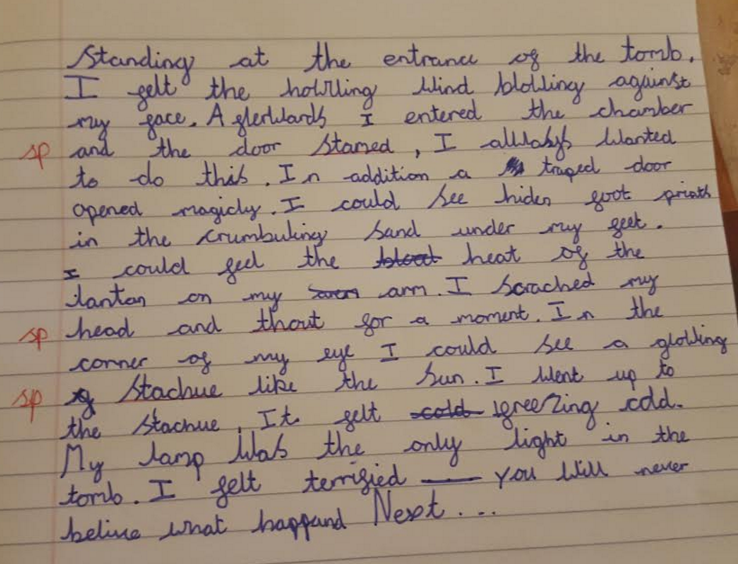 Standing at the entrance of the tomb.
I felt the howling wind blowing against
my face. Afterwards I entered the chamber
sp and the door stamed, I allways wanted
to do this. In addition a traped door
opened magicly. I could see hiden foot prints
in the crumbuling sand under my feet.
I could feel the bloat heat of the
lantan on my arm. I scrached my
sp head and thout for a moment. In the
corner of my eye I could see a glowing
sp stachue like the sun. I went up to
the stachue. It felt cold freezing cold.
My lamp was the only light in the
tomb. I felt terrified —— you will never
belive what happand Next...